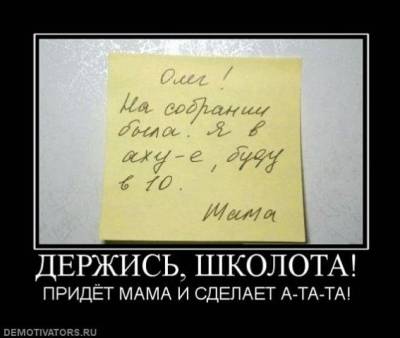 Олег!
На собрании
была. Я в
аху-е, буду
в 10.
Мама
ДЕРЖИСЬ, ШКОЛОТА!
ПРИДЁТ МАМА И СДЕЛАЕТ А-ТА-ТА!
DEMOTIVATORS.RU